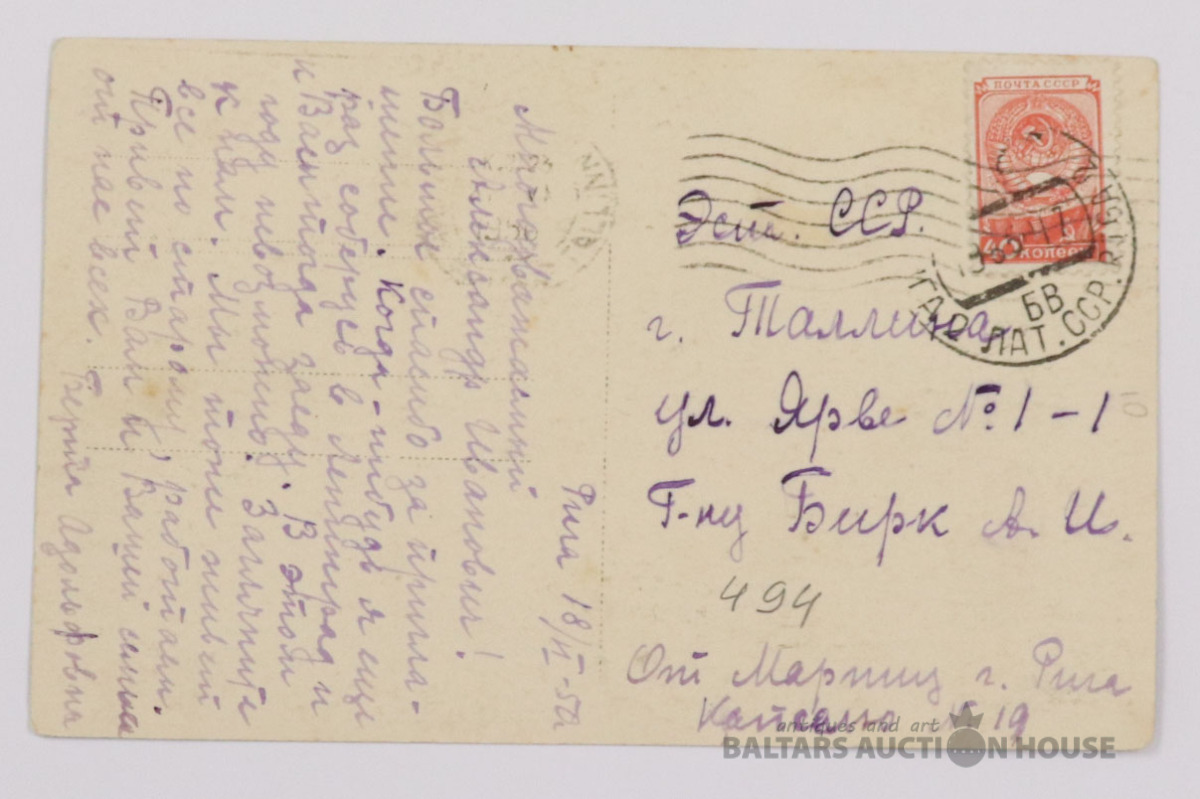 Рига 18/VI-50
Многоуважаемый
Александр Иванович!
Большое спасибо за пригла-
шение. Когда-нибудь я еще
раз соберусь в Ленинград и
к Вам тогда заеду. В этом
году невозможно. Загляните
к нам. Мы тоже живем
все по старому, работаем.
Привет Вам и Вашей семье
от нас всех.
Берта Адольфовна
ПОЧТА СССР
40 КОПЕЕК
БВ
ЛАТ. ССР. RIGA
Эст. ССР.
г. Таллинн
ул. Ярве № 1-1
Г-ну Бирк А. И.
494
От г. Рига
№ 19
antiques and art
BALTARS AUCTION HOUSE